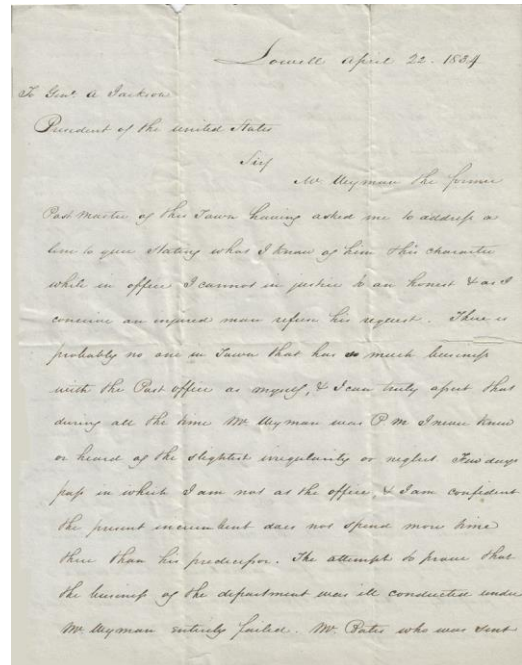 Lowell April 22. 1834
To Genl. A Jackson
President of the united States
Sir
Mr Wyman the former
Post Master of this Town having asked me to address a
line to you stating what I know of him & his character
while in office I cannot in justice to an honest & as I
conceive an injured man refuse his request. There is
probably no one in Town that has so much business
with the Post office as myself, & I can truly assert that
during all the time Mr Wyman was P M I never knew
or heard of the slightest irregularity or neglect Few days
pass in which I am not at the office, & I am confident
the present incumbent does not spend more time
there than his predecessor. The attempt to prove that
the business of the department was ill conducted under
Mr Wyman entirely failed. Mr Bates who was sent